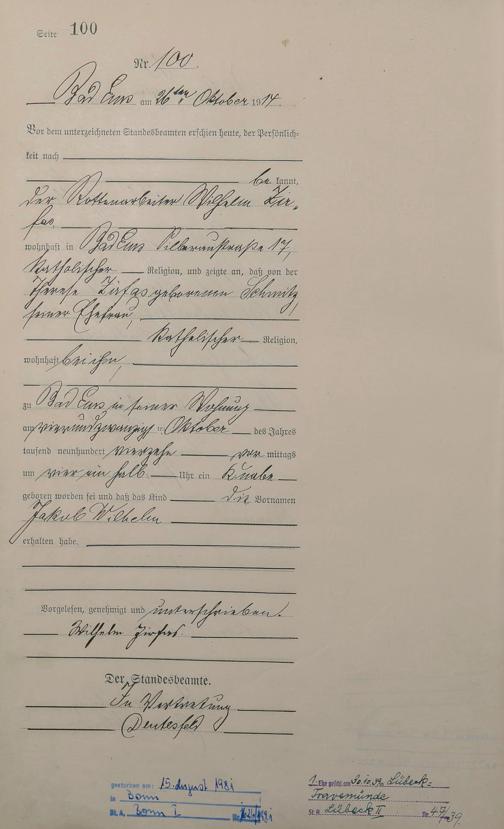 Seite 100
Nr. 100
Bad Ems am 26ten Oktober 1914
Vor dem unterzeichneten Standesbeamten erschien heute, der Persönlich-
keit nach
be kannt,
der Rottenarbeiter Wilhelm Zir-
fas,
wohnhaft in Bad Ems Silberaustraße 17,
katholischer Religion, und zeigte an, daß von der
Therese Zirfas geborenen Schmitz,
seiner Ehefrau,
katholischer Religion,
wohnhaft bei ihm,
zu Bad Ems in seiner Wohnung
am vierundzwanzigsten Oktober des Jahres
tausend neunhundert vierzehn vor mittags
um vier ein halb Uhr ein Knabe
geboren worden sei und daß das Kind die Vornamen
Jakob Wilhelm
erhalten habe.
Vorgelesen, genehmigt und unterschrieben.
Wilhelm Zirfas
Der Standesbeamte.
In Vertretung
gestorben am: 15. August 1981
in Bonn
St. A. Bonn I
1. Ehe geschl. am Lübeck-
Travemünde
St. A. Lübeck II Nr. 47/39